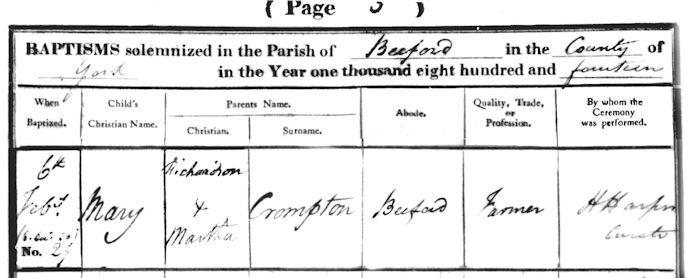 ( Page 5 )
BAPTISMS solemnized in the Parish of Beeford in the County of
York in the Year one thousand eight hundred and fourteen
When Baptized. Child's Christian Name. Parents Name. Abode. Quality, Trade, or Profession. By whom the Ceremony was performed.
Christian. Surname.
6th Richardson
Feby. Mary & Crompton Beeford Farmer H Harper
Martha Curate
No.